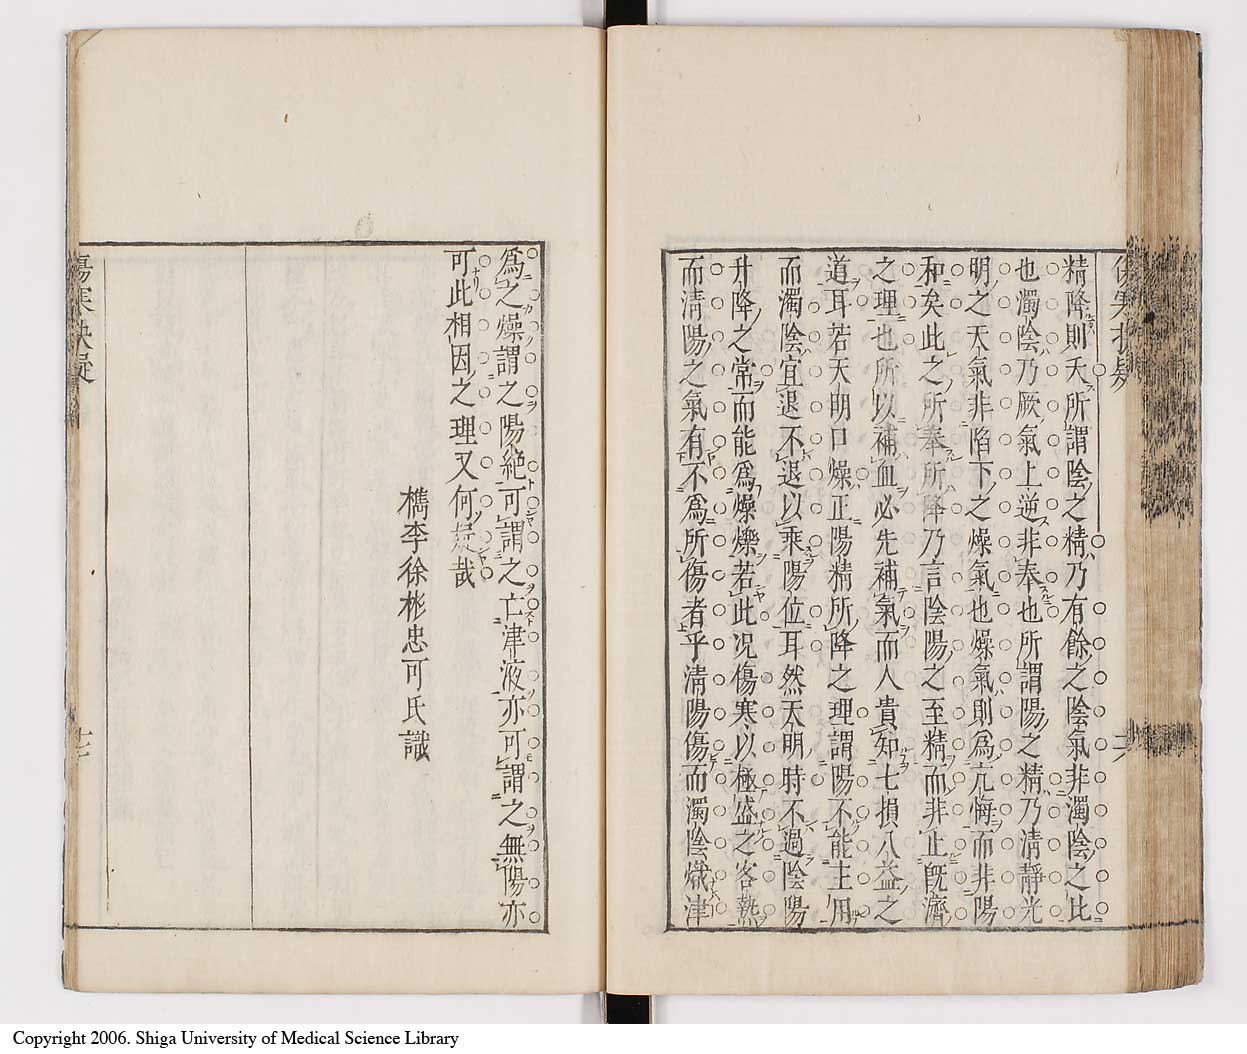 精降則夭所謂陰之精乃有餘之陰氣非濁陰之比
也濁陰乃厥氣上逆非奉也所謂陽之精乃清靜光
明之天氣非陷下之燥氣也燥氣則為亢悔而非陽
和矣此之所奉所降乃言陰陽之至精而非止既濟
之理也所以補血必先補氣而人貴知七損八益之
道耳若天明口燥正陽精所降之理謂陽不能主用
而濁陰宜退不退以乘陽位耳然天明時不過陰陽
升降之常而能為燥爍若此况傷寒以極盛之客熱
而清陽之氣有不為所傷者乎清陽傷而濁陰熾津
為之燥謂之陽絕可謂之亡津液亦可謂之無陽亦
可此相因之理又何疑哉
檇李徐彬忠可氏識
Copyright 2006. Shiga University of Medical Science Library